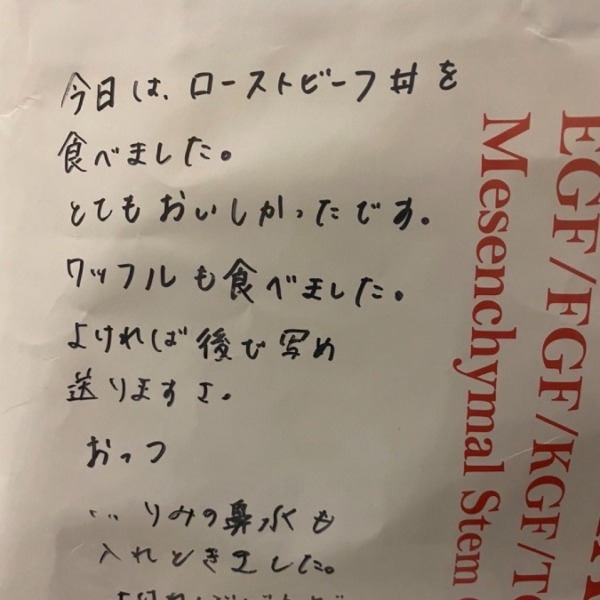 今日は、ローストビーフ丼を
食べました。
とてもおいしかったです。
ワッフルも食べました。
よければ後で写め
送りますよ。
おっつ
りみの鼻水も
入れときました。
EGF/FGF/KGF/T
Mesenchymal Stem